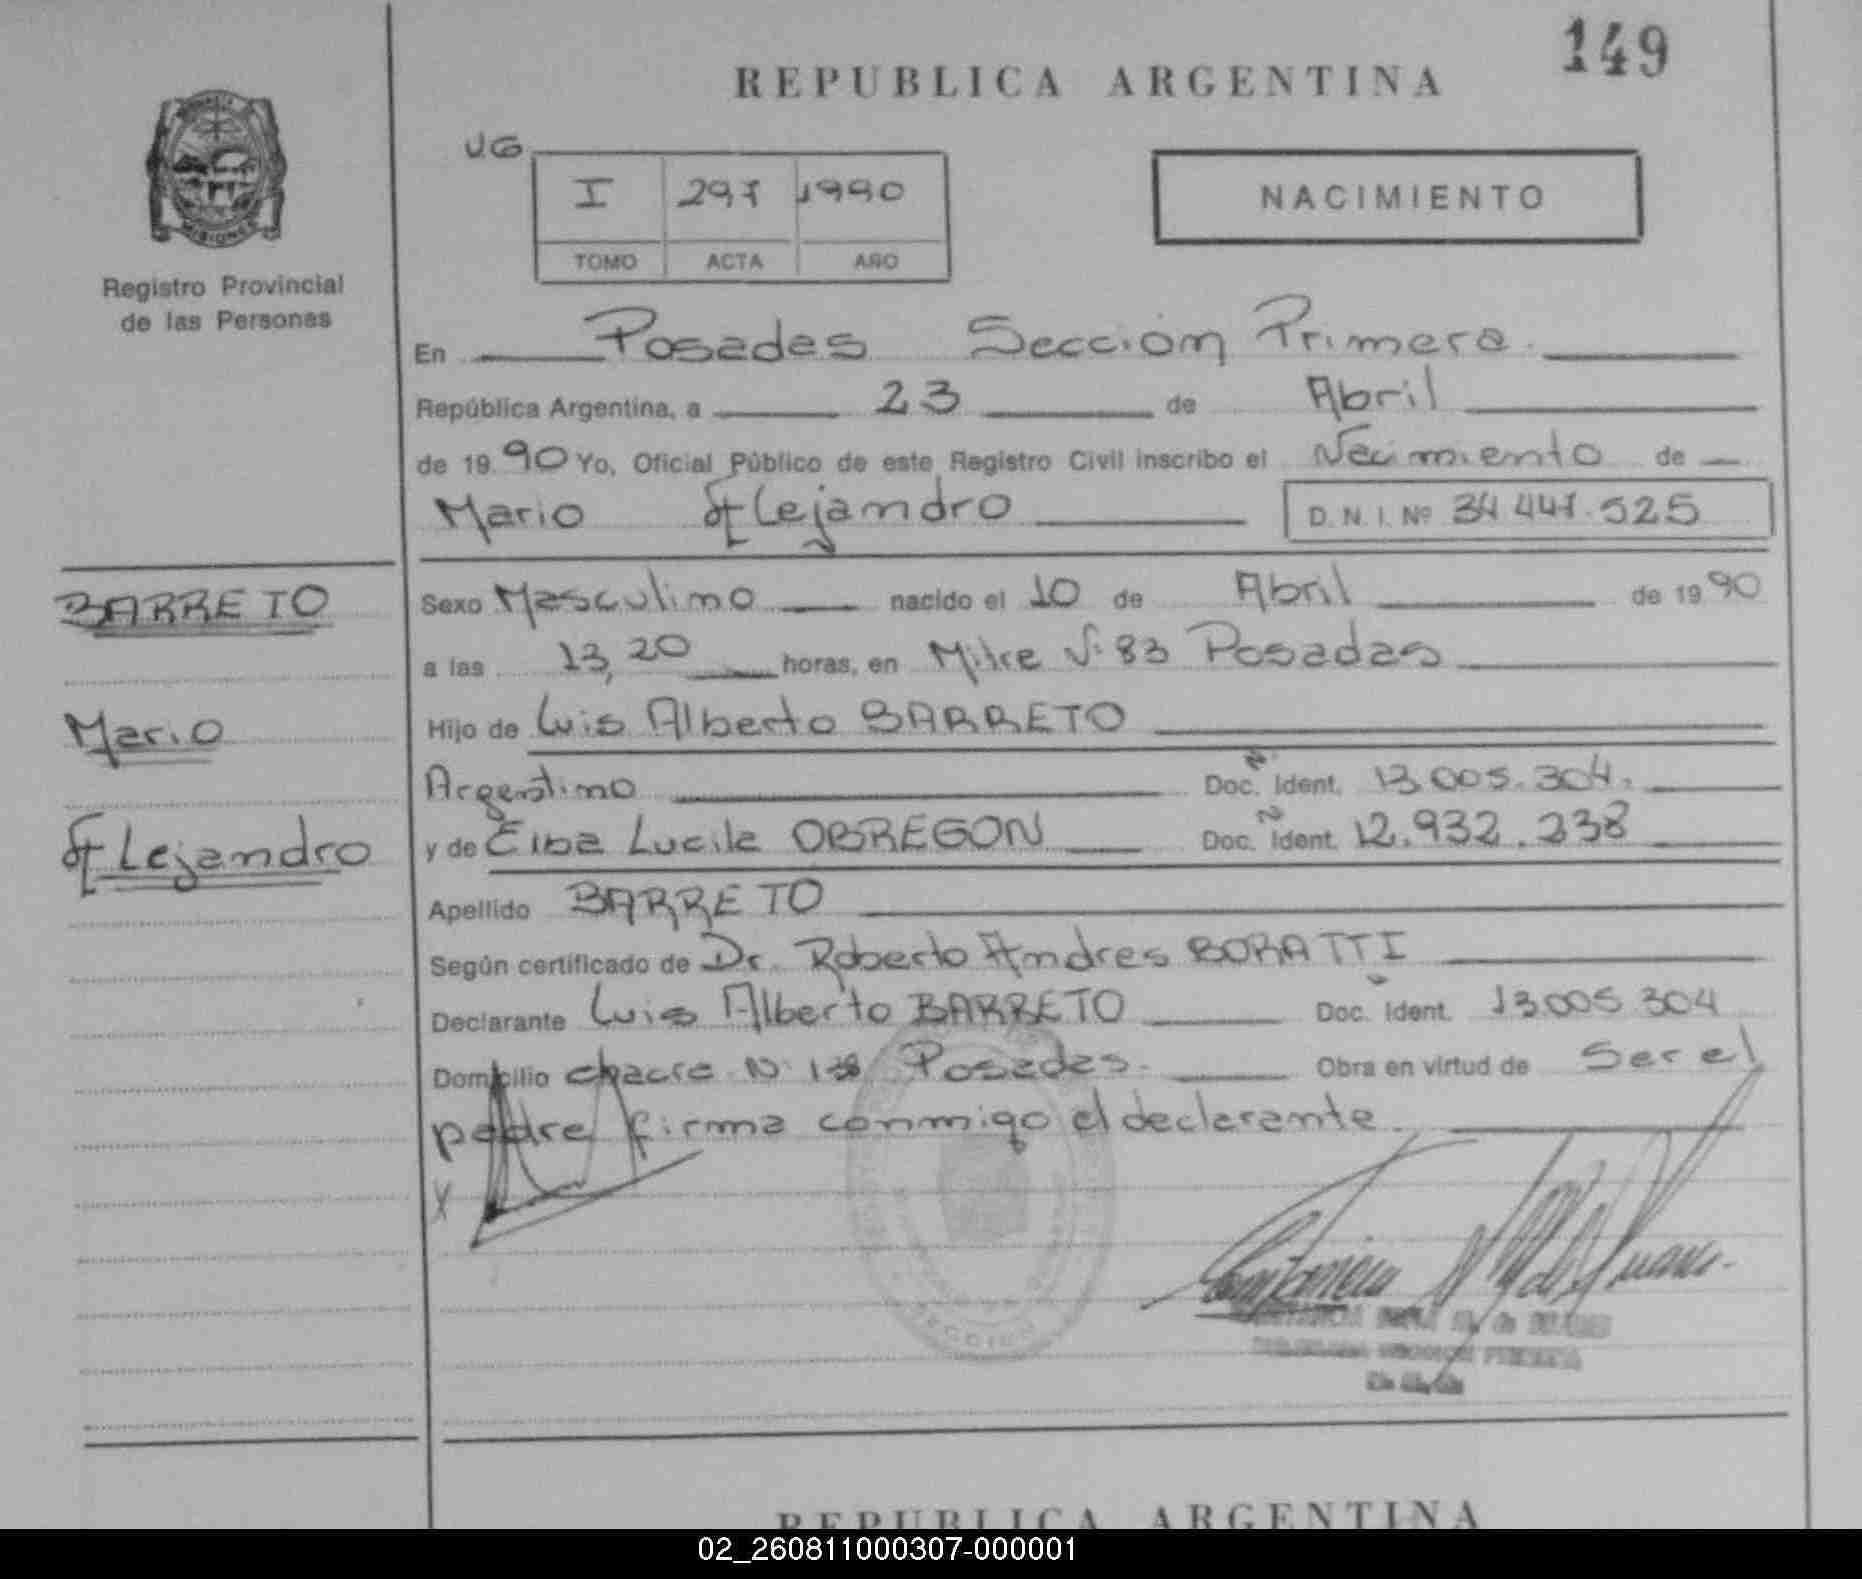 149
REPUBLICA ARGENTINA
U.G
I 297 1990
TOMO ACTA AÑO
NACIMIENTO
MISIONES
Registro Provincial
de las Personas
En Posadas Sección Primera
República Argentina, a 23 de Abril
de 1990 Yo, Oficial Público de este Registro Civil inscribo el Nacimiento de
Mario Alejandro D.N.I. Nº 34.447.525
BARRETO
Mario
Alejandro
Sexo Masculino nacido el 10 de Abril de 1990
a las 13,20 horas, en Mitre Nº 83 Posadas
Hijo de Luis Alberto BARRETO
Argentino Doc. N. Ident. 13.005.304.
y de Elba Lucila OBREGON Doc. N Ident. 12.932.238
Apellido BARRETO
Según certificado de Dr. Roberto Andres BORATTI
Declarante Luis Alberto BARRETO Doc. Ident. 13.005.304
Domicilio chacra Nº Posadas. Obra en virtud de Ser el
padre firma conmigo el declarante.
X
SECCION
REPUBLICA ARGENTINA
02_260811000307-000001